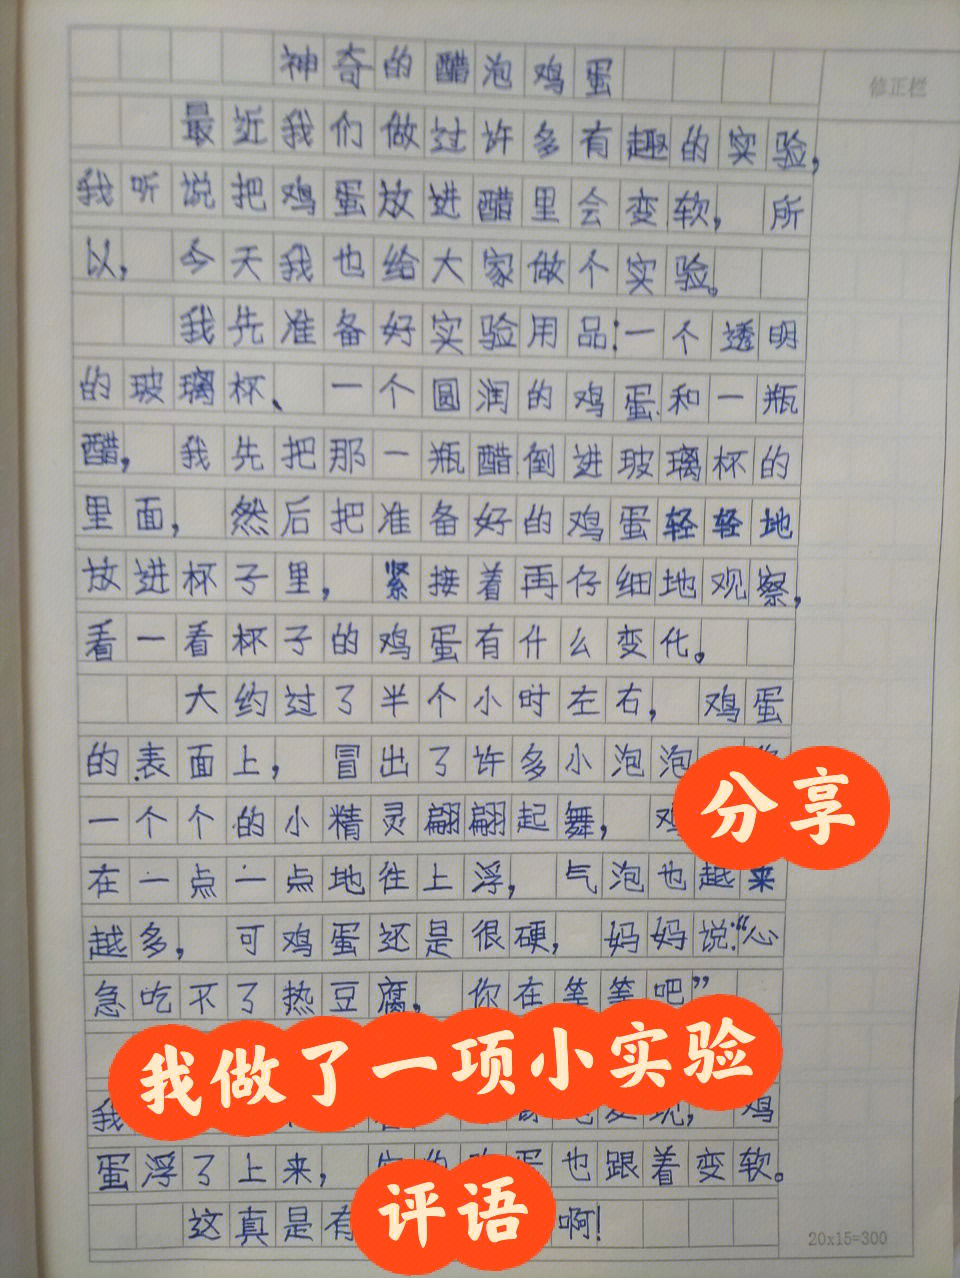 神奇的醋泡鸡蛋
修正栏
最近我们做过许多有趣的实验，
我听说把鸡蛋放进醋里会变软，所
以，今天我也给大家做个实验。
我先准备好实验用品：一个透明
的玻璃杯、一个圆润的鸡蛋和一瓶
醋，我先把那一瓶醋倒进玻璃杯的
里面，然后把准备好的鸡蛋轻轻地
放进杯子里，紧接着再仔细地观察，
看一看杯子的鸡蛋有什么变化。
大约过了半个小时左右，鸡蛋
的表面上，冒出了许多小泡泡
一个个的小精灵翩翩起舞，鸡
分享
在一点一点地往上浮，气泡也越来
越多，可鸡蛋还是很硬，妈妈说：“心
急吃不了热豆腐，你在等等吧”
我做了一项小实验
我 发现，鸡
蛋浮了上来， 蛋也跟着变软。
评语
这真是有 啊！
20x15=300